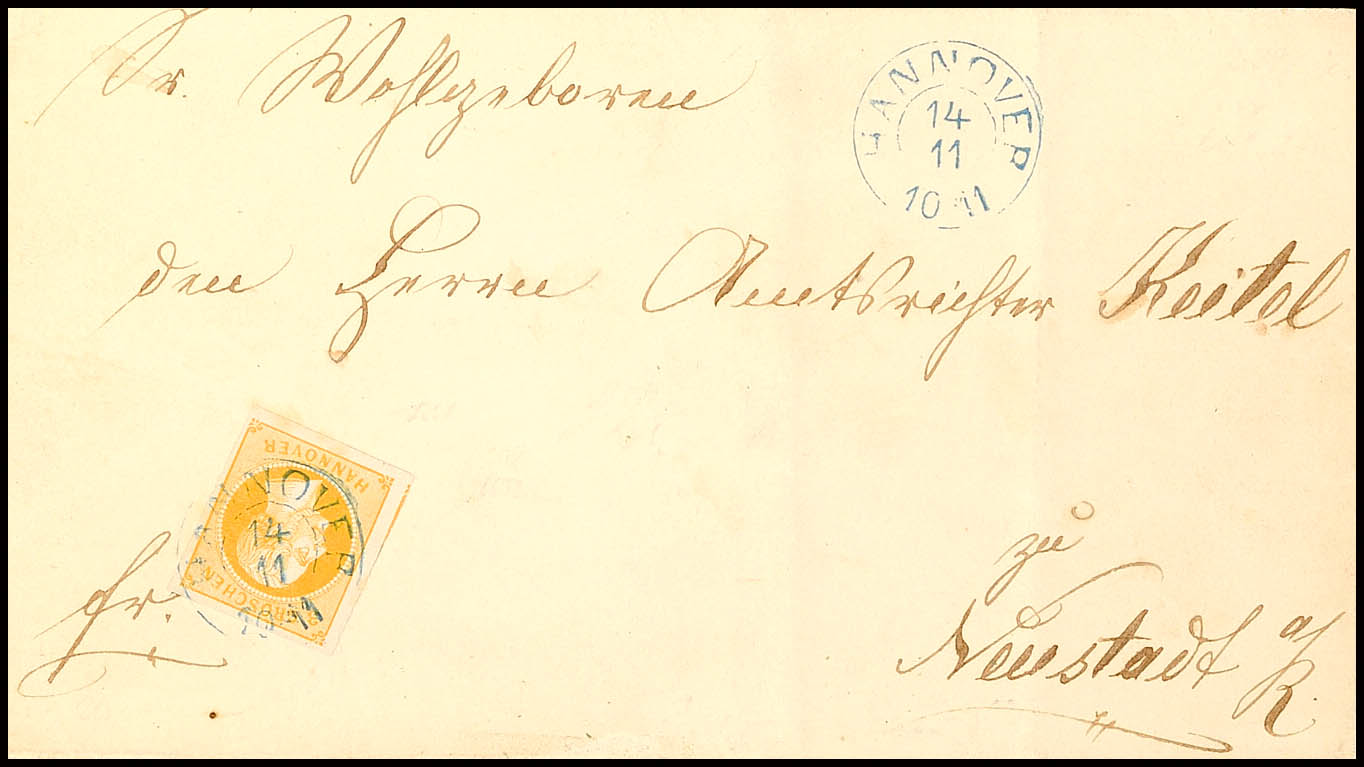 Sr. Wohlgeboren
HANNOVER
14
11
10-11
den Herrn Amtsrichter Keitel
HANNOVER
HANNOVER
14
11
10-11
GROSCHEN
fr.
zu
Neustadt a/R.